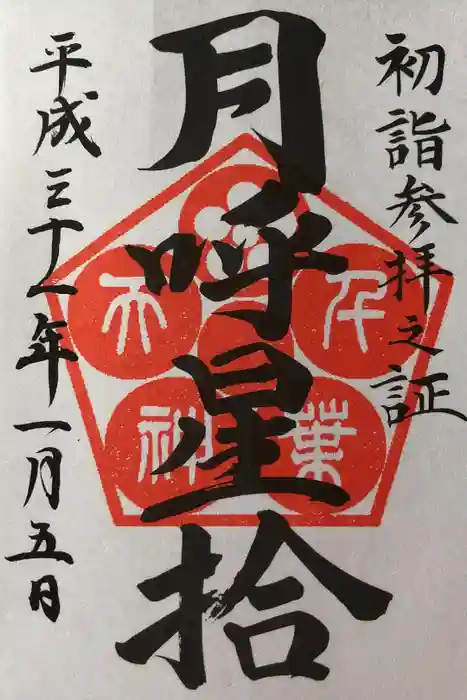 初詣参拝之証
月呼星拾
千葉天神
平成三十一年一月五日